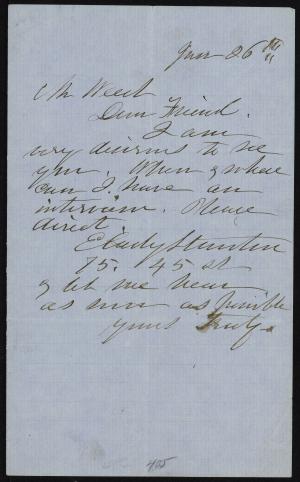 Jan 26th
Mr Weed
Dear Friend.
I am
very desirous to see
you. When & where
can I have an
interview. Please
direct
E Cady Stanton
75. 45 st
& let me hear
as soon as possible
yours Truly
405